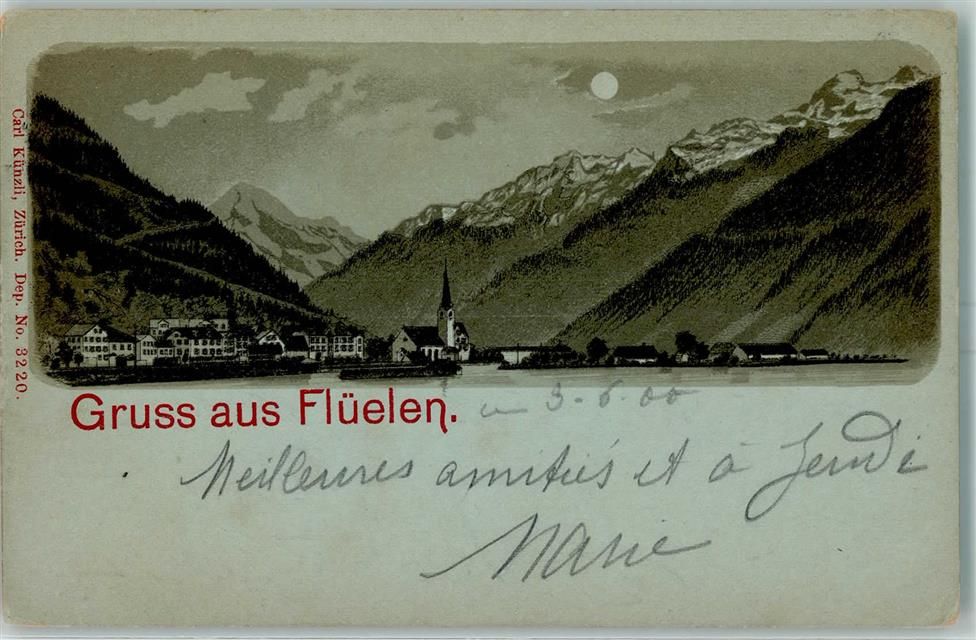 Carl Künzli, Zürich. Dep. No. 3220.
Gruss aus Flüelen.
3-6.00
Meilleures amitiés et à Jeudi
Marie